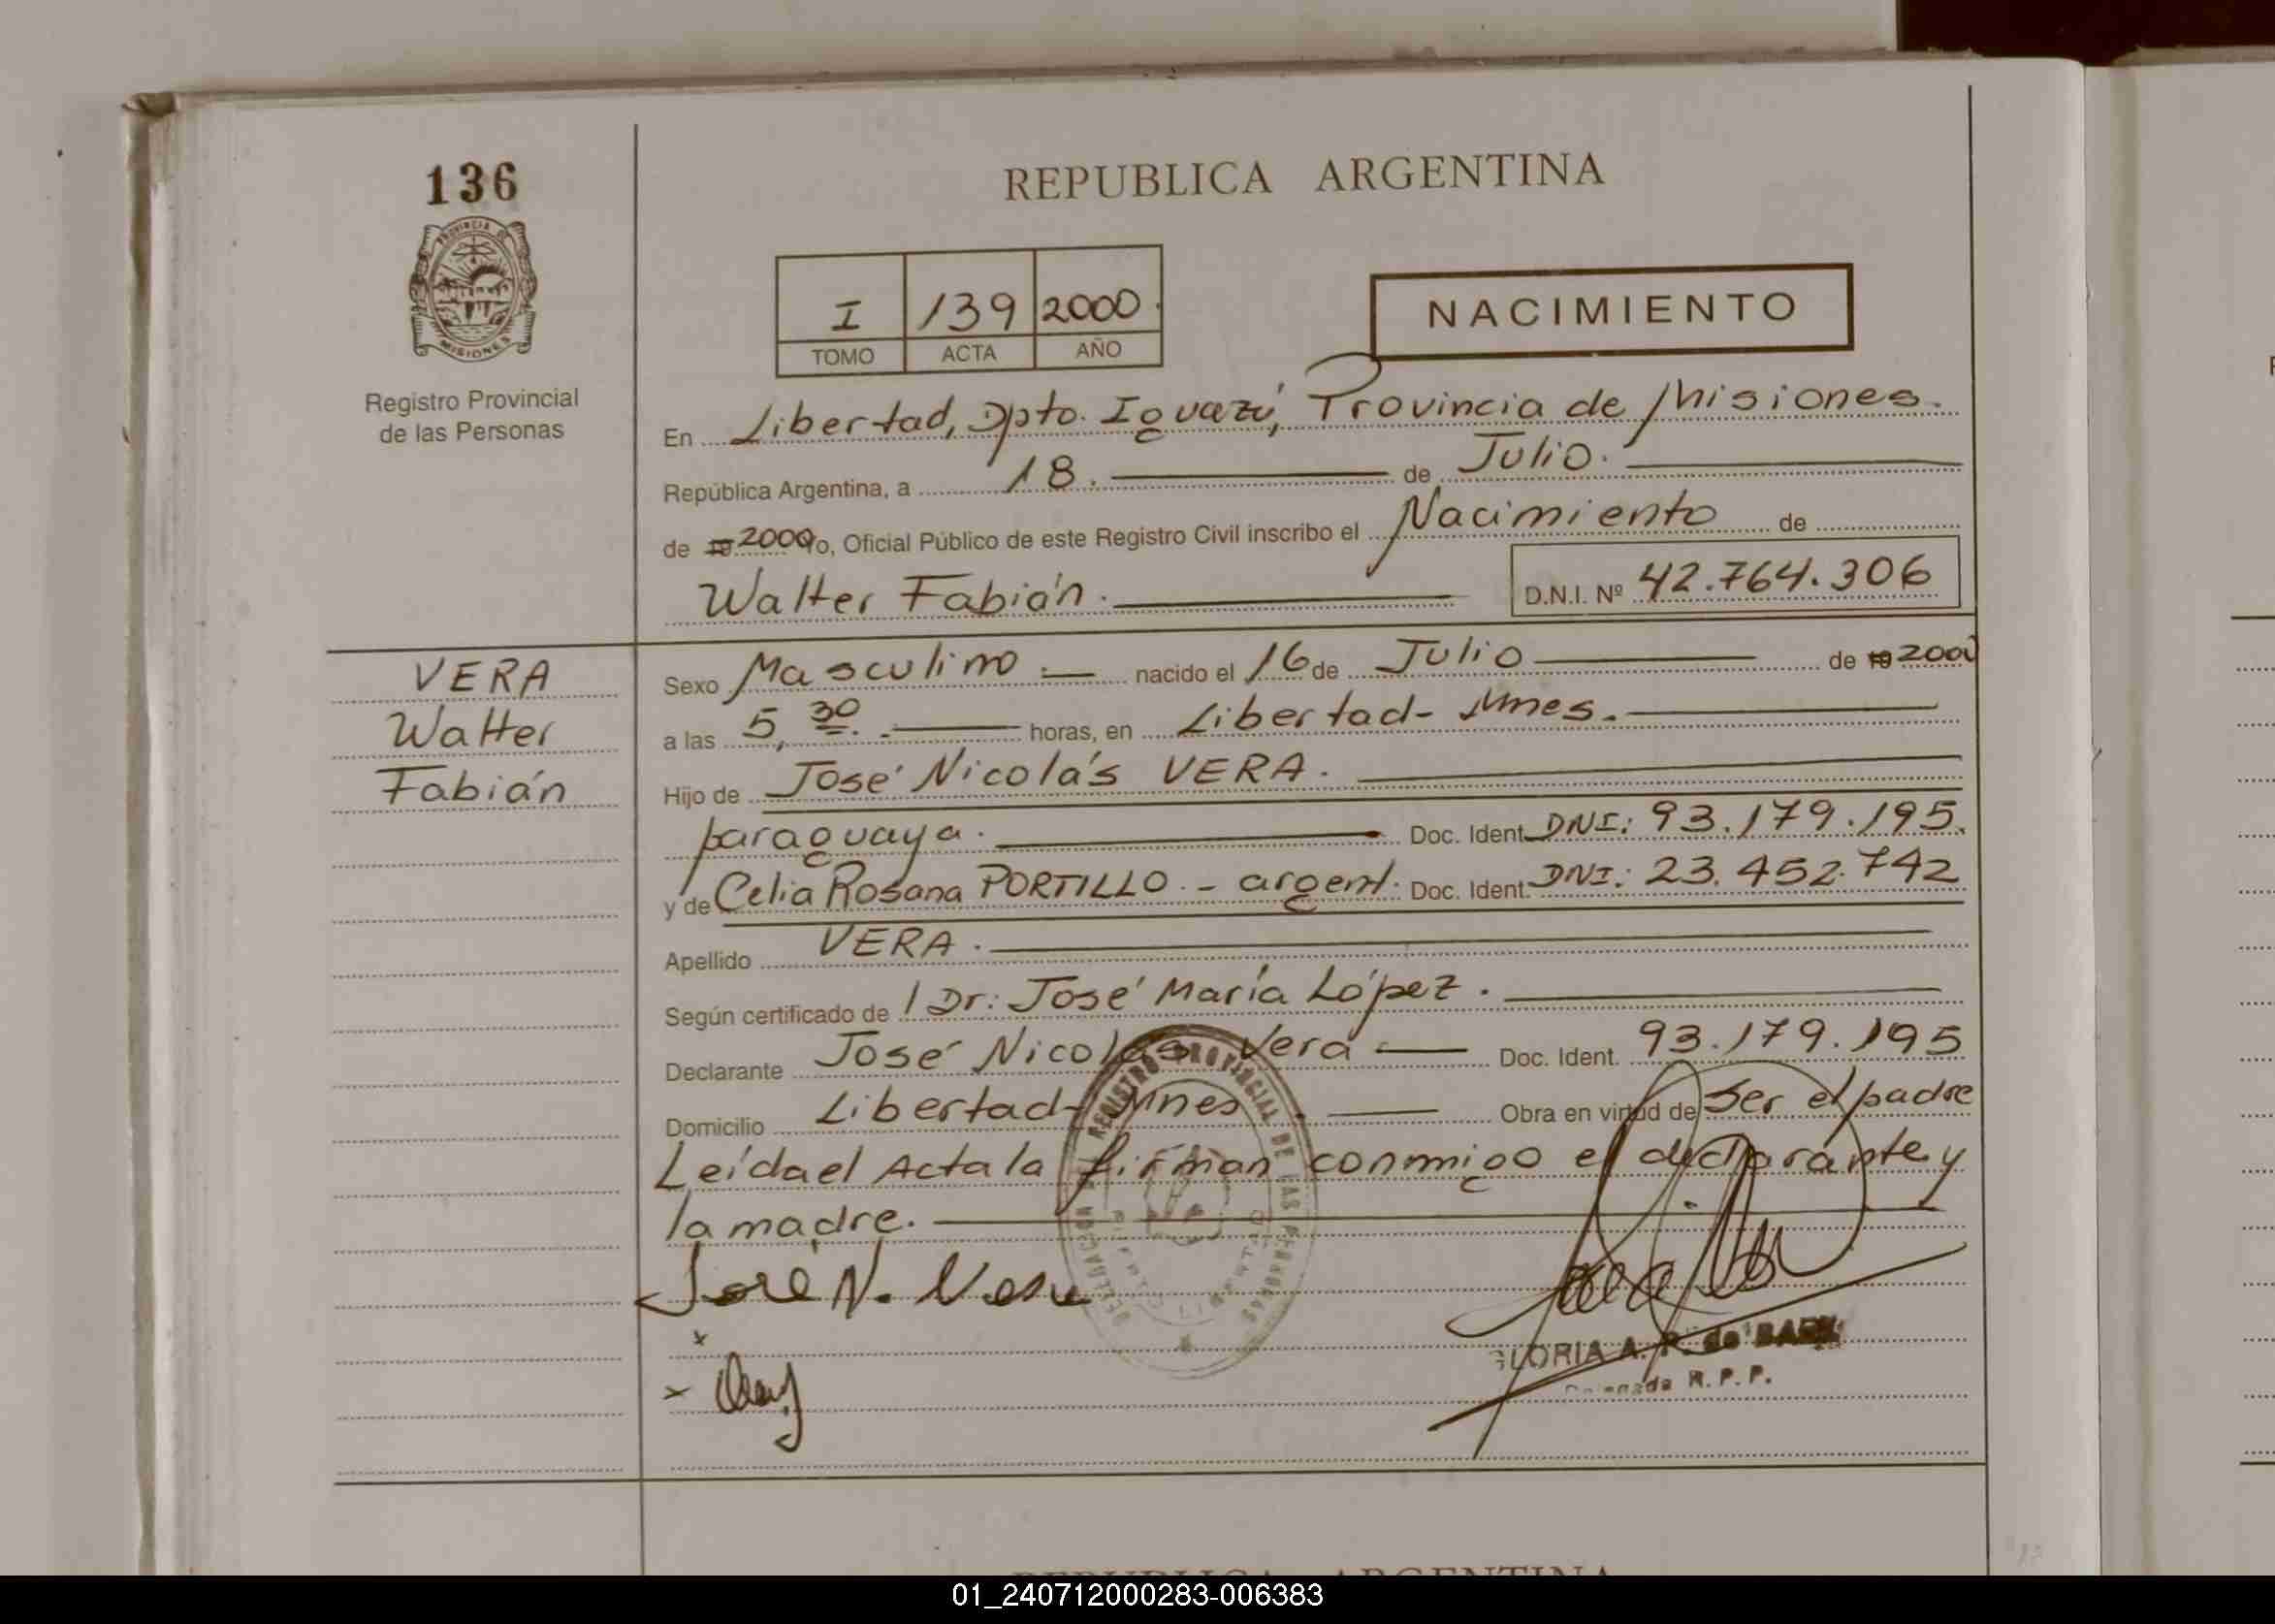 136
REPUBLICA ARGENTINA
PROVINCIA DE
MISIONES
Registro Provincial
de las Personas
I 139 2000.
TOMO ACTA AÑO
NACIMIENTO
En Libertad, Dpto. Iguazú, Provincia de Misiones.
República Argentina, a 18. de Julio.
de 19 2000 Yo, Oficial Público de este Registro Civil inscribo el Nacimiento de
Walter Fabián. D.N.I. Nº 42.764.306
VERA
Walter
Fabián
Sexo Masculino.- nacido el 16 de Julio de 19 2000
a las 5,30. horas, en Libertad- Mnes.
Hijo de José Nicolás VERA.
paraguaya. Doc. Ident. DNI: 93.179.195.
y de Celia Rosana PORTILLO.- argent. Doc. Ident. DNI: 23.452.742
Apellido VERA.
Según certificado de / Dr: José María López.
Declarante José Nicolás Vera Doc. Ident. 93.179.195
Domicilio Libertad- Mnes. Obra en virtud de Ser el padre
Leída el Acta la firman conmigo el declarante y
la madre.
José N. Vera
DELEGACION DEL REGISTRO PROVINCIAL DE LAS PERSONAS
GLORIA A. R. de
Delegada R. P. P.
REPUBLICA ARGENTINA
01_240712000283-006383